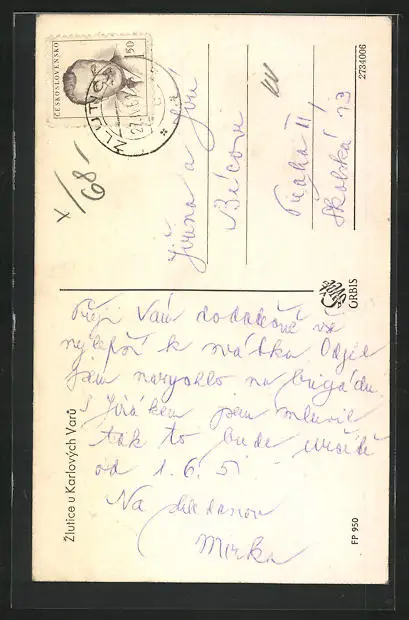 ČESKOSLOVENSKO
1.50
ŽLUTICE
68-
Jiřina a Jiří
Bécovi
Praha II
Školská 13
2734006
ORBIS
Přeji Vám dodatečně vše
nejlepší k svátku. Odjel
jsem narychlo na brigádu.
S Jirákem jsem mluvil
tak to bude určitě
od 1. 6. 51
Na shledanou
Mirka
Žlutice u Karlových Varů
FP 950